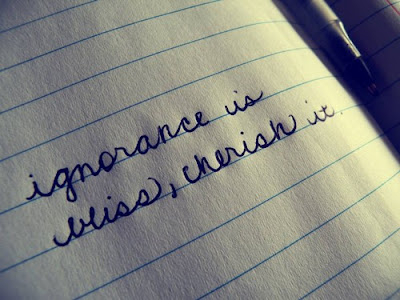 ignorance is
bliss, cherish it.